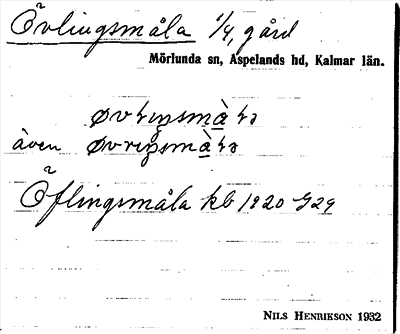 Övlingsmåla 1/4, gård
Mörlunda sn, Aspelands hd, Kalmar län.
även
Öflingsmåla kb 1920 G29
NILS HENRIKSON 1932